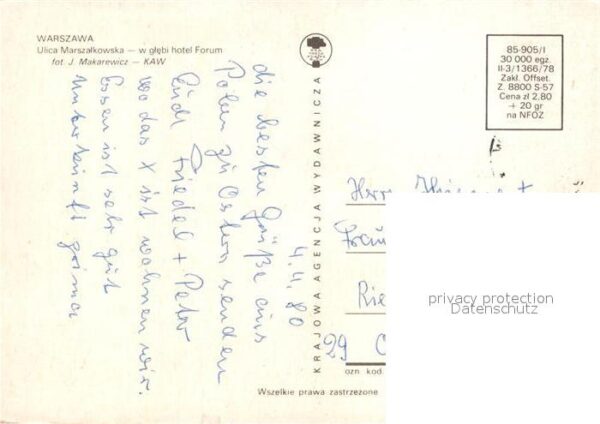 WARSZAWA
Ulica Marszałkowska — w głębi hotel Forum
fot. J. Makarewicz — KAW
85-905/I
30 000 egz.
II-3/1366/78
Zakł. Offset.
Z. 8800 S-57
Cena zł 2,80
+ 20 gr
na NFOZ
KRAJOWA AGENCJA WYDAWNICZA
4.4.80
die besten Grüße aus
Polen zu Ostern senden
Euch Friedel + Peter
wo das X ist wohnen wir.
Essen ist sehr gut
Unterkunft prima
Herr
Frau
Rie
29
ozn. kod
Wszelkie prawa zastrzeżone
privacy protection
Datenschutz